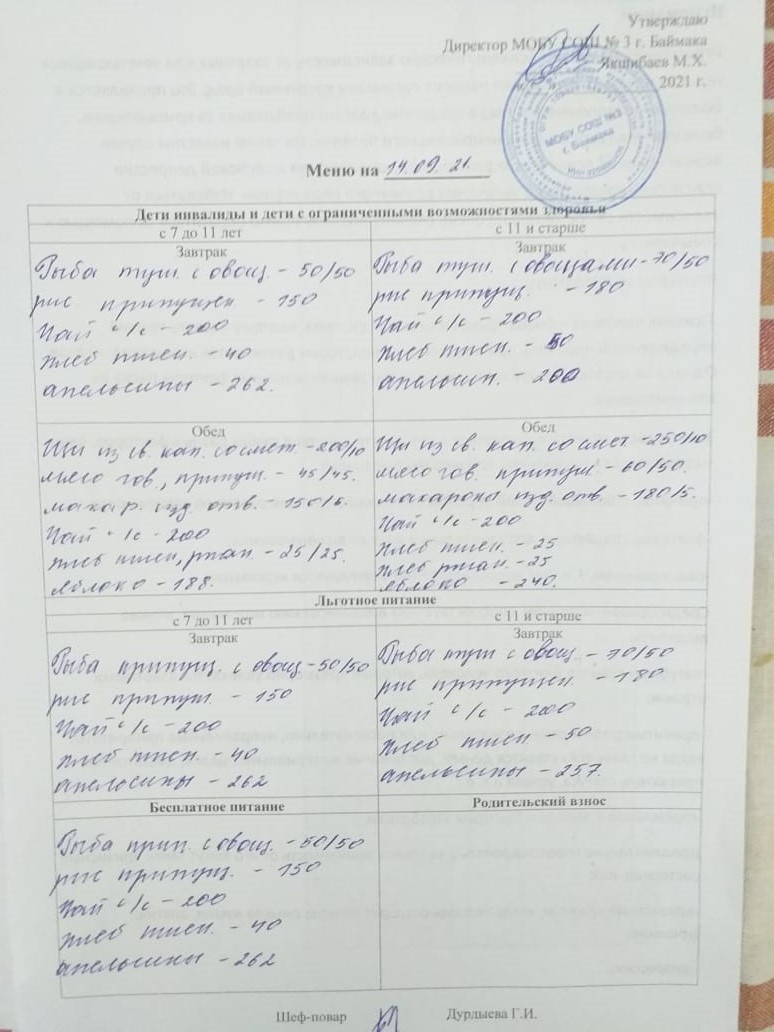 Утверждаю
Директор МОБУ СОШ № 3 г. Баймака
Якшибаев М.Х.
« » 2021 г.
МОБУ СОШ №3
г. Баймака
Меню на 14.09.21.
Дети инвалиды и дети с ограниченными возможностями здоровья
с 7 до 11 лет
Завтрак
Рыба туш. с овощ. - 50/50
рис припущен - 150
Чай с/с - 200
хлеб пшен. - 40
апельсины - 262.
с 11 и старше
Завтрак
Рыба туш. с овощами - 70/50
рис припущ. - 180
Чай с/с - 200
хлеб пшен. - 50
апельсин. - 200
Обед
Щи из св. кап. со смет. - 200/10
мясо гов., припущ. - 45/45.
макар. изд. отв. - 150/5.
Чай с/с - 200
хлеб пшен, ржан - 25/25.
яблоко - 188.
Обед
Щи из св. кап. со смет - 250/10
мясо гов. припущ - 60/50.
макароны изд. отв. - 180/5.
Чай с/с - 200
хлеб пшен. - 25
хлеб ржан. - 25
яблоко - 240.
Льготное питание
с 7 до 11 лет
Завтрак
Рыба припущ. с овощ - 50/50
рис припущ. - 150
Чай с/с - 200
хлеб пшен. - 40
апельсины - 262
с 11 и старше
Завтрак
Рыба туш с овощ. - 70/50
рис припущен. - 180
Чай с/с - 200
хлеб пшен - 50
апельсины - 257.
Бесплатное питание
Рыба прип. с овощ. - 50/50
рис припущ. - 150
Чай с/с - 200
хлеб пшен. - 40
апельсины - 262
Родительский взнос
Шеф-повар Дурдыева Г.И.